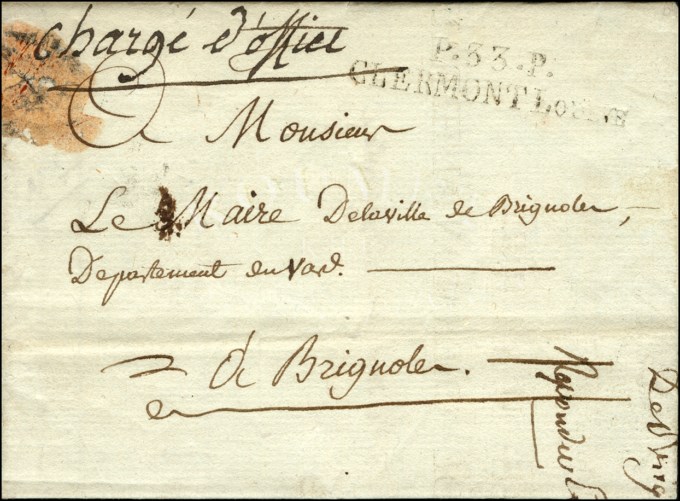 Chargé d'office
P.33.P.
CLERMONT LODÈVE
A Monsieur
Le Maire Delaville de Brignoles,
Departement du Var.
à Brignoles.
Repondu